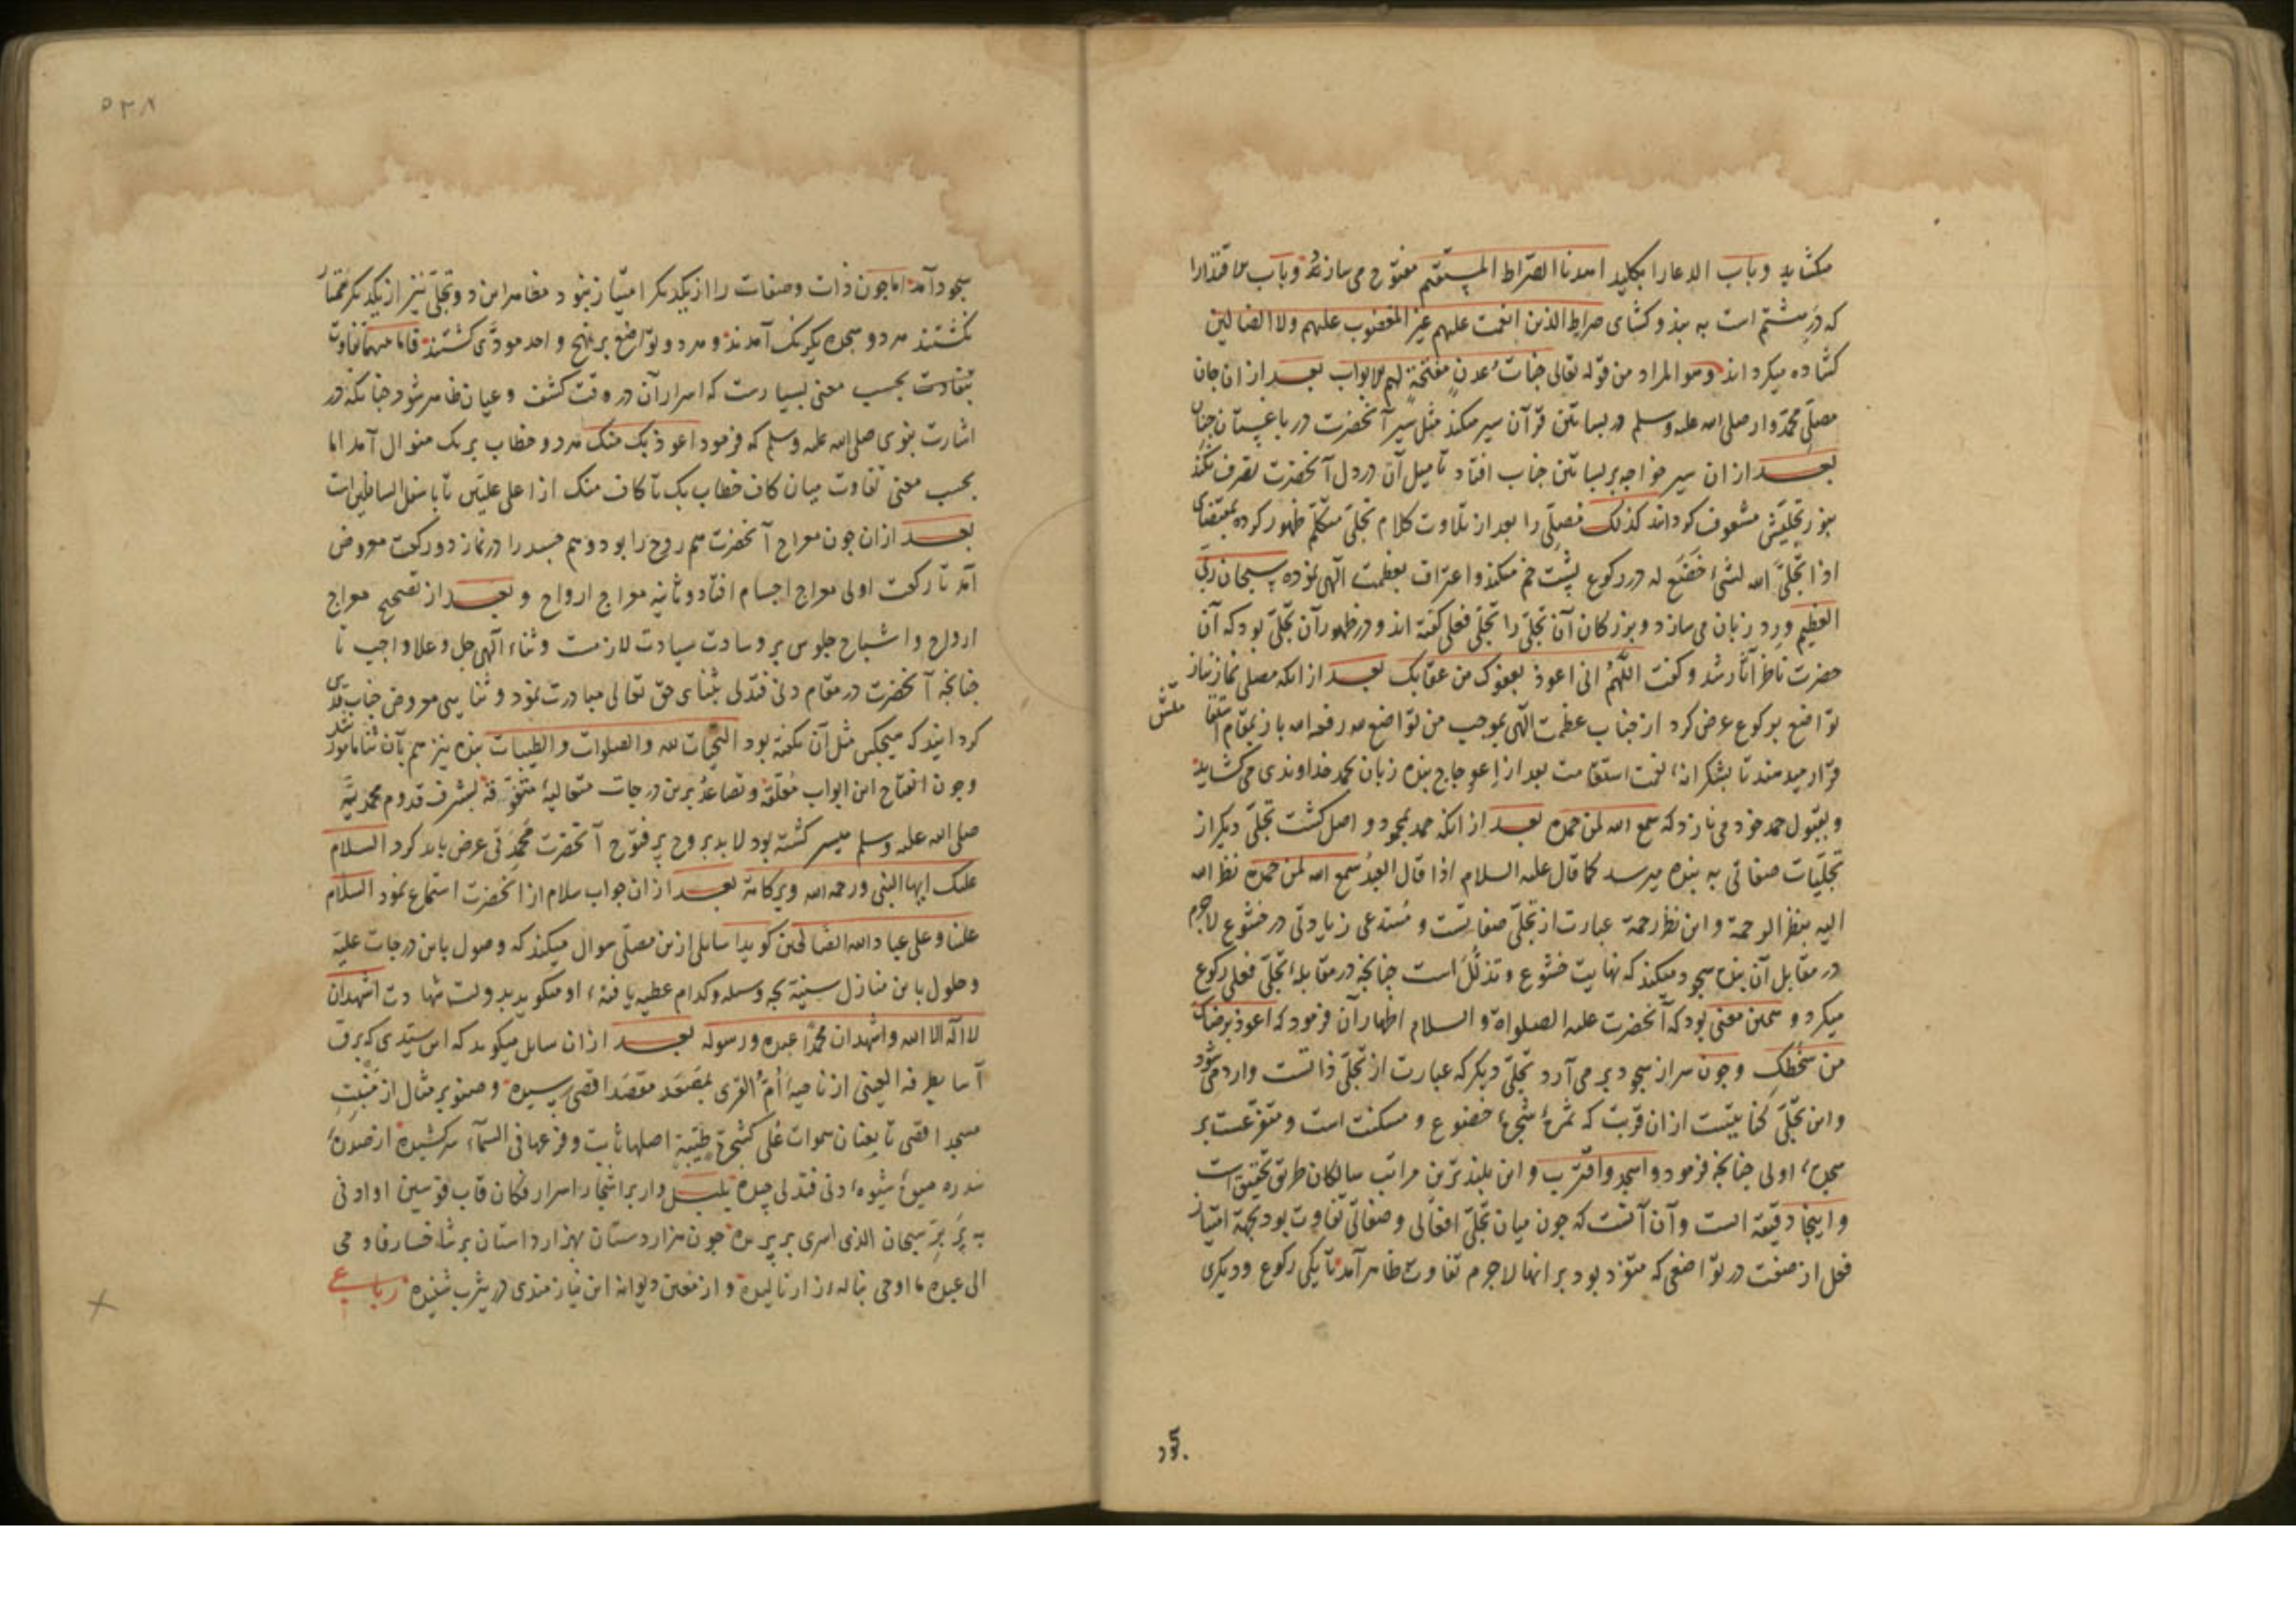 میکشاید و باب الدعا را بکلید اهدنا الصراط المستقیم مفتوح می سازد و باب مقتدا را
که در هشتم است به بند و کشای صراط الذین انعمت علیهم غیر المغضوب علیهم ولا الضالین
کشاده میکرداند وهو المراد من قوله تعالی جنات عدن مفتحة لهم الابواب بعد از ان جان
مصلی محمدوار صلی الله علیه وسلم در بساتین قرآن سیر میکند مثل سیر آنحضرت در باغستان جنان
بعد از ان سیر خواجه بر بساتین جناب افتاد تا میل آن در دل آنحضرت تصرف نکند
بنور تجلیش مشعوف کرداند کذلک مصلی را بعد از تلاوت کلام تجلی متکلم ظهور کرده بمقتضای
اذا تجلی الله لشئ خضع له در رکوع پشت خم میکند و اعتراف بعظمت الهی نموده سبحان ربی
العظیم ورد زبان می سازد و بزرکان آن تجلی را تجلی فعلی کفته اند و در ظهور آن تجلی بود که آن
حضرت ناظر آثار شد و کفت اللهم انی اعوذ بعفوک من عقابک بعد از انکه مصلی نماز نیاز
تواضع بر کوع عرض کرد از جناب عظمت الهی بموجب من تواضع لله رفعه الله باز بمقام
قرار میدهند تا بشکرانه نعمت استقامت بعد از اعوجاج بنده زبان بحمد خداوندی می کشاید
و بقبول حمد خود می نازد که سمع الله لمن حمده بعد از انکه حمد بمحمود واصل کشت تجلی دیکر از
تجلیات صفاتی به بنده میرسد کما قال علیه السلام اذا قال العبد سمع الله لمن حمده نظر الله
الیه بنظر الرحمة و این نظر رحمة عبارت از تجلی صفاتیست و مستدعی زیادتی در خشوع لاجرم
در مقابل آن بنده سجود میکند که نهایت خشوع و تذلل است چنانچه در مقابله تجلی فعلی رکوع
میکرد و همین معنی بود که آنحضرت علیه الصلواة و السلام اظهار آن فرمود که اعوذ برضاک
من سخطک و چون سر از سجود بر می آرد تجلی دیکر که عبارت از تجلی ذاتست وارد می شود
و این تجلی کنایتیست از ان قربت که ثمره شجره خضوع و مسکنت است و متفرعست بر
سجده اولی چنانچه فرمود واسجد واقترب و این بلندترین مراتب سالکان طریق تحقیق است
و اینجا دقیقه است و آن آنست که چون میان تجلی افعالی و صفاتی تفاوت بود بجهة امتیاز
فعل از صفت در تواضعی که متفرد بود بر انها لاجرم تفاوت ظاهر آمد تا یکی رکوع و دیکری
سجود آمد اما چون ذات و صفات را از یکدیکر امتیاز نبود مظاهر این دو تجلی نیز از یکدیکر ممتاز
نکشتند هر دو سجده یکرنک آمدند و هر دو تواضع بر نهج واحد مودی کشتند فاما میانها تفاوت
بحسب معنی بسیارست که اسرار آن در وقت کشف و عیان ظاهر شود چنانکه در
اشارت نبوی صلی الله علیه وسلم که فرمود اعوذ بک منک هر دو خطاب بر یک منوال آمد اما
بحسب معنی تفاوت میان کاف خطاب بک تا کاف منک از اعلی علیین تا باسفل السافلین است
بعد از ان چون معراج آنحضرت هم روح را بود و هم جسد را در نماز دو رکعت مفروض
آمد تا رکعت اولی معراج اجسام افتاد و ثانیه معراج ارواح و بعد از تصحیح معراج
ارواح و اشباح جلوس بر وسادت سیادت لازمست و ثناء الهی جل وعلا واجب تا
چنانچه آنحضرت در مقام دنی فتدلی بثنای حق تعالی مبادرت نمود و ثنایی معروض جناب قدسی
کردانید که هیچکس مثل آن نکفته بود التحیات لله والصلوات والطیبات بنده نیز هم بآن ثنا مامور شد
و چون افتتاح این ابواب مغلقه و تصاعد برین درجات متعالیه بشرف قدوم محمدیه
صلی الله علیه وسلم میسر کشته بود لابد بروح پر فتوح آنحضرت عرض باید کرد السلام
علیک ایها النبی ورحمه الله وبرکاته بعد از ان جواب سلام از آنحضرت استماع نمود السلام
علینا وعلی عباد الله الصالحین کویا سایلی ازین مصلی سوال میکند که وصول باین درجات علیه
و حلول باین منازل سنیه بچه وسیله و کدام عطیه یافته او میکوید بدولت شهادت اشهد ان
لا اله الا الله واشهد ان محمدا عبده ورسوله بعد از ان سایل میکوید که این سیدی که برق
آسا بطرفه العینی از ناحیه ام القری بمصعد مقصد اقصی رسیده و صنوبر مثال از منبت
مسجد اقصی تا بعنان سموات علی کشجرة طیبة اصلها ثابت وفرعها فی السماء سرکشیده از سدره
میوه شیوه دنی فتدلی چیده بلبل وار بر اشجار اسرار فکان قاب قوسین او ادنی
به پر بر سبحان الذی اسری بر پریده چون هزاردستان بهزار داستان بر شاخسار فاوحی
الی عبده ما اوحی بناله زار نالیده و از معین دیوانه این نیازمندی در یثرب شنیده رباعی